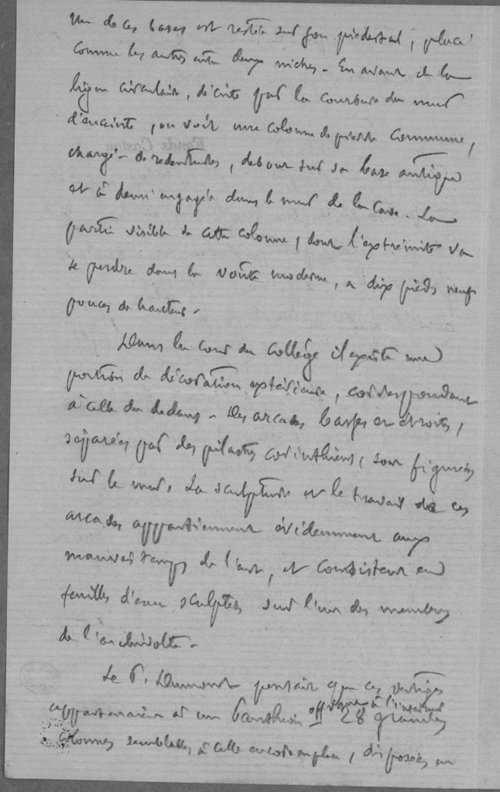 Un de ces bases est restée sur son piédestal, placé
comme les autres entre deux niches. En avant de la
ligne circulaire, décrite par la courbure du mur
d'enceinte, on voit une colonne de pierre commune,
chargé de rudentures, debout sur sa base antique
et à demi engagée dans le mur de la cave. La
partie visible de cette colonne, dont l'extrémité va
se perdre dans la voûte moderne, a dix pieds neuf
pouces de hauteur.
Dans la cour du Collége il existe une
portion de décoration extérieure, correspondant
à celle du dedans. Des arcades basses et étroites,
séparées par des pilastres corinthiens, sont figurées
sur le mur. La sculpture et le travail de ces
arcades appartiennent évidemment aux
mauvais temps de l'art, et consistent en
feuilles d'eau sculptées sur l'un des membres
de l'archivolte.
Le P. Dumont pensait que ces vestiges
appartenaient à un Panthéon offrant à l'intérieur 28 grandes
colonnes semblables à celle encore en place, disposées en